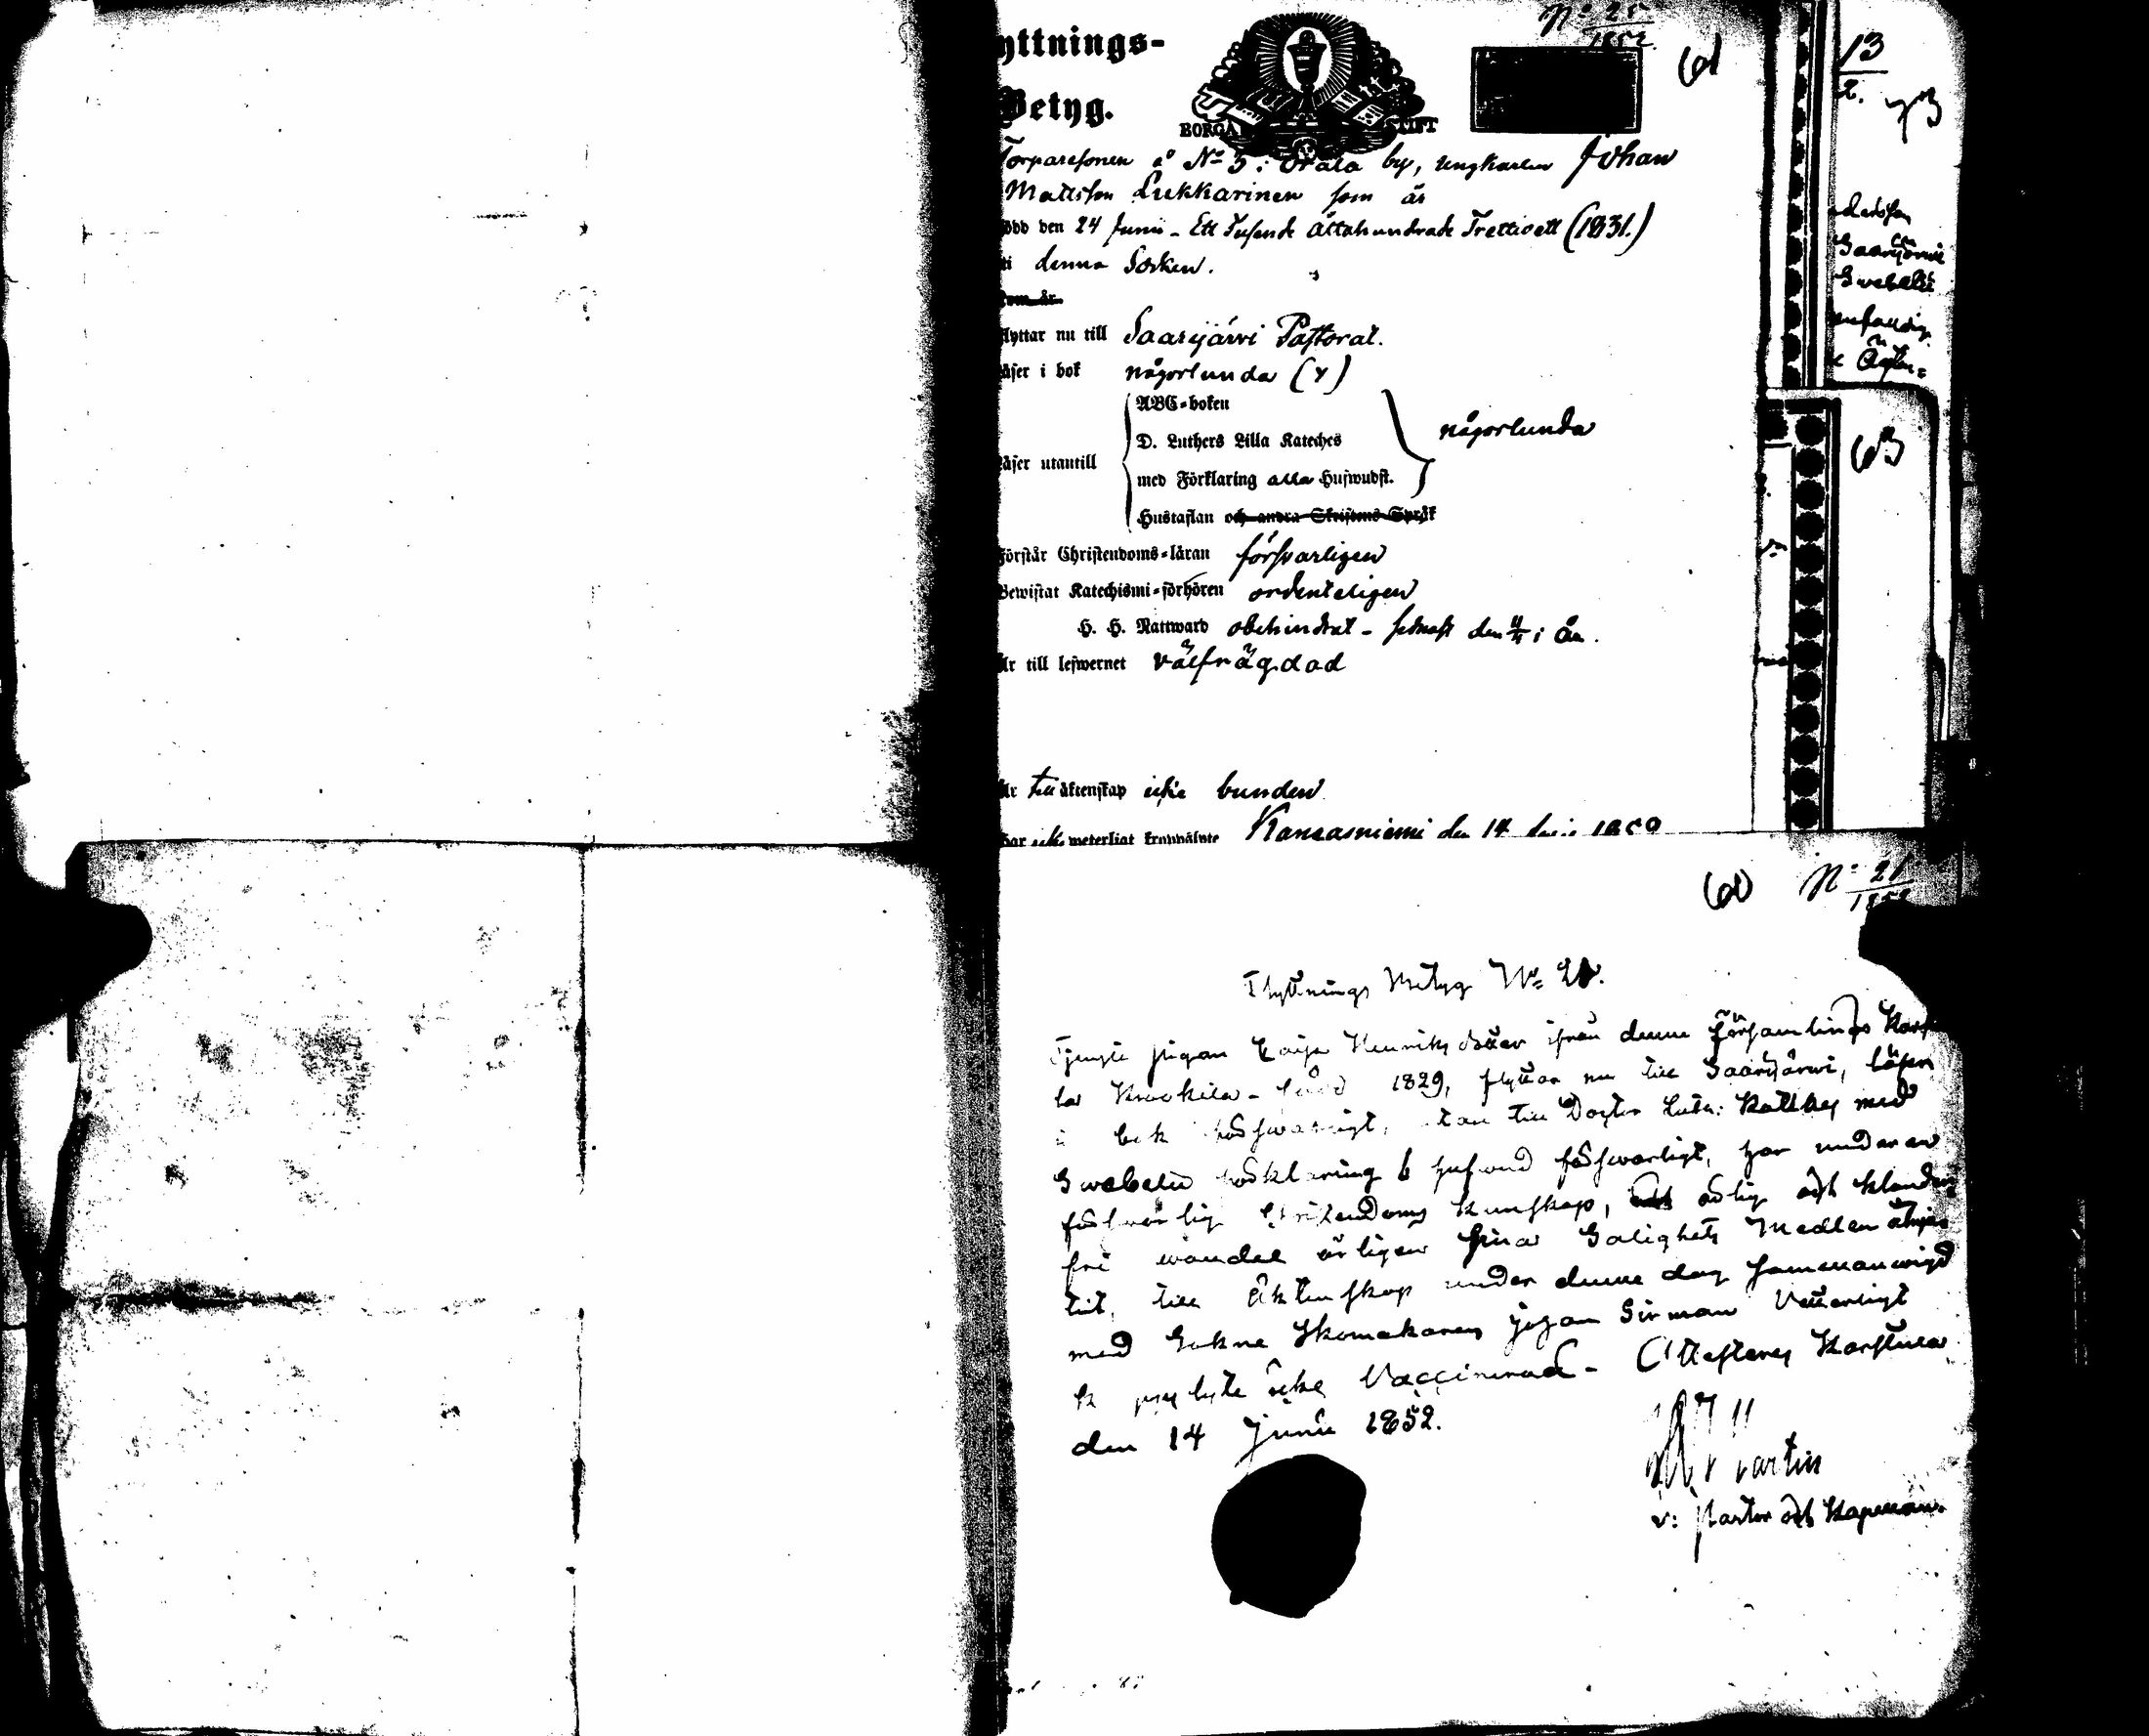 yttnings-
Betyg.
BORGÅ STIFT
No 25
1852
61
Torparesonen å No 3: Orala by, ungkarlen Johan
Mattsson Lukkarinen som är
ödd den 24 Junii - Ett Tusende Åttahundrade Trettioett (1831.)
i denna Socken.
som är
lyttar nu till Saarijärvi Pastorat.
äser i bok någorlunda (Y)
ABC-boken
D. Luthers Lilla Kateches
någorlunda
äser utantill
med Förklaring alla Hufwudst.
Hustaflan och andra Skriftens Språk
Förstår Christendoms-läran försvarligen
Bewistat Katechismi-förhören ordenteligen
H. H. Nattward obehindrat - sednast den i år.
Är till lefwernet välfrägdad
Är till äktenskap icke bunden
har icke weterligt kroppslyte Kangasniemi den 14 1852
13
2.
73
Saarijärvi
Swebelii
63
60
No 21
1852
Flyttnings Betyg No 21.
Tjenste pigan Caisa Henriksdotter ifrån denne Församlings Karstu
la Krookila - född 1829, flyttar nu till Saarijärvi, läser
i bok försvarligt, utan till Doctor Luth: Katches med
Swebelii förklaring 6 hufwud försvarligt, har
försvarlig Christendoms kunskap, och klander
fri wandel årligen sina Salighets Medlen åtnju
tit, till Äktenskap under denne dag sammanwigd
med Sokne Skomakaren Johan Sirman Vetterligt
lyte icke Vaccinerad - Attesteras Karstula
den 14 Junii 1852.
v: Pastor och Kapellan.